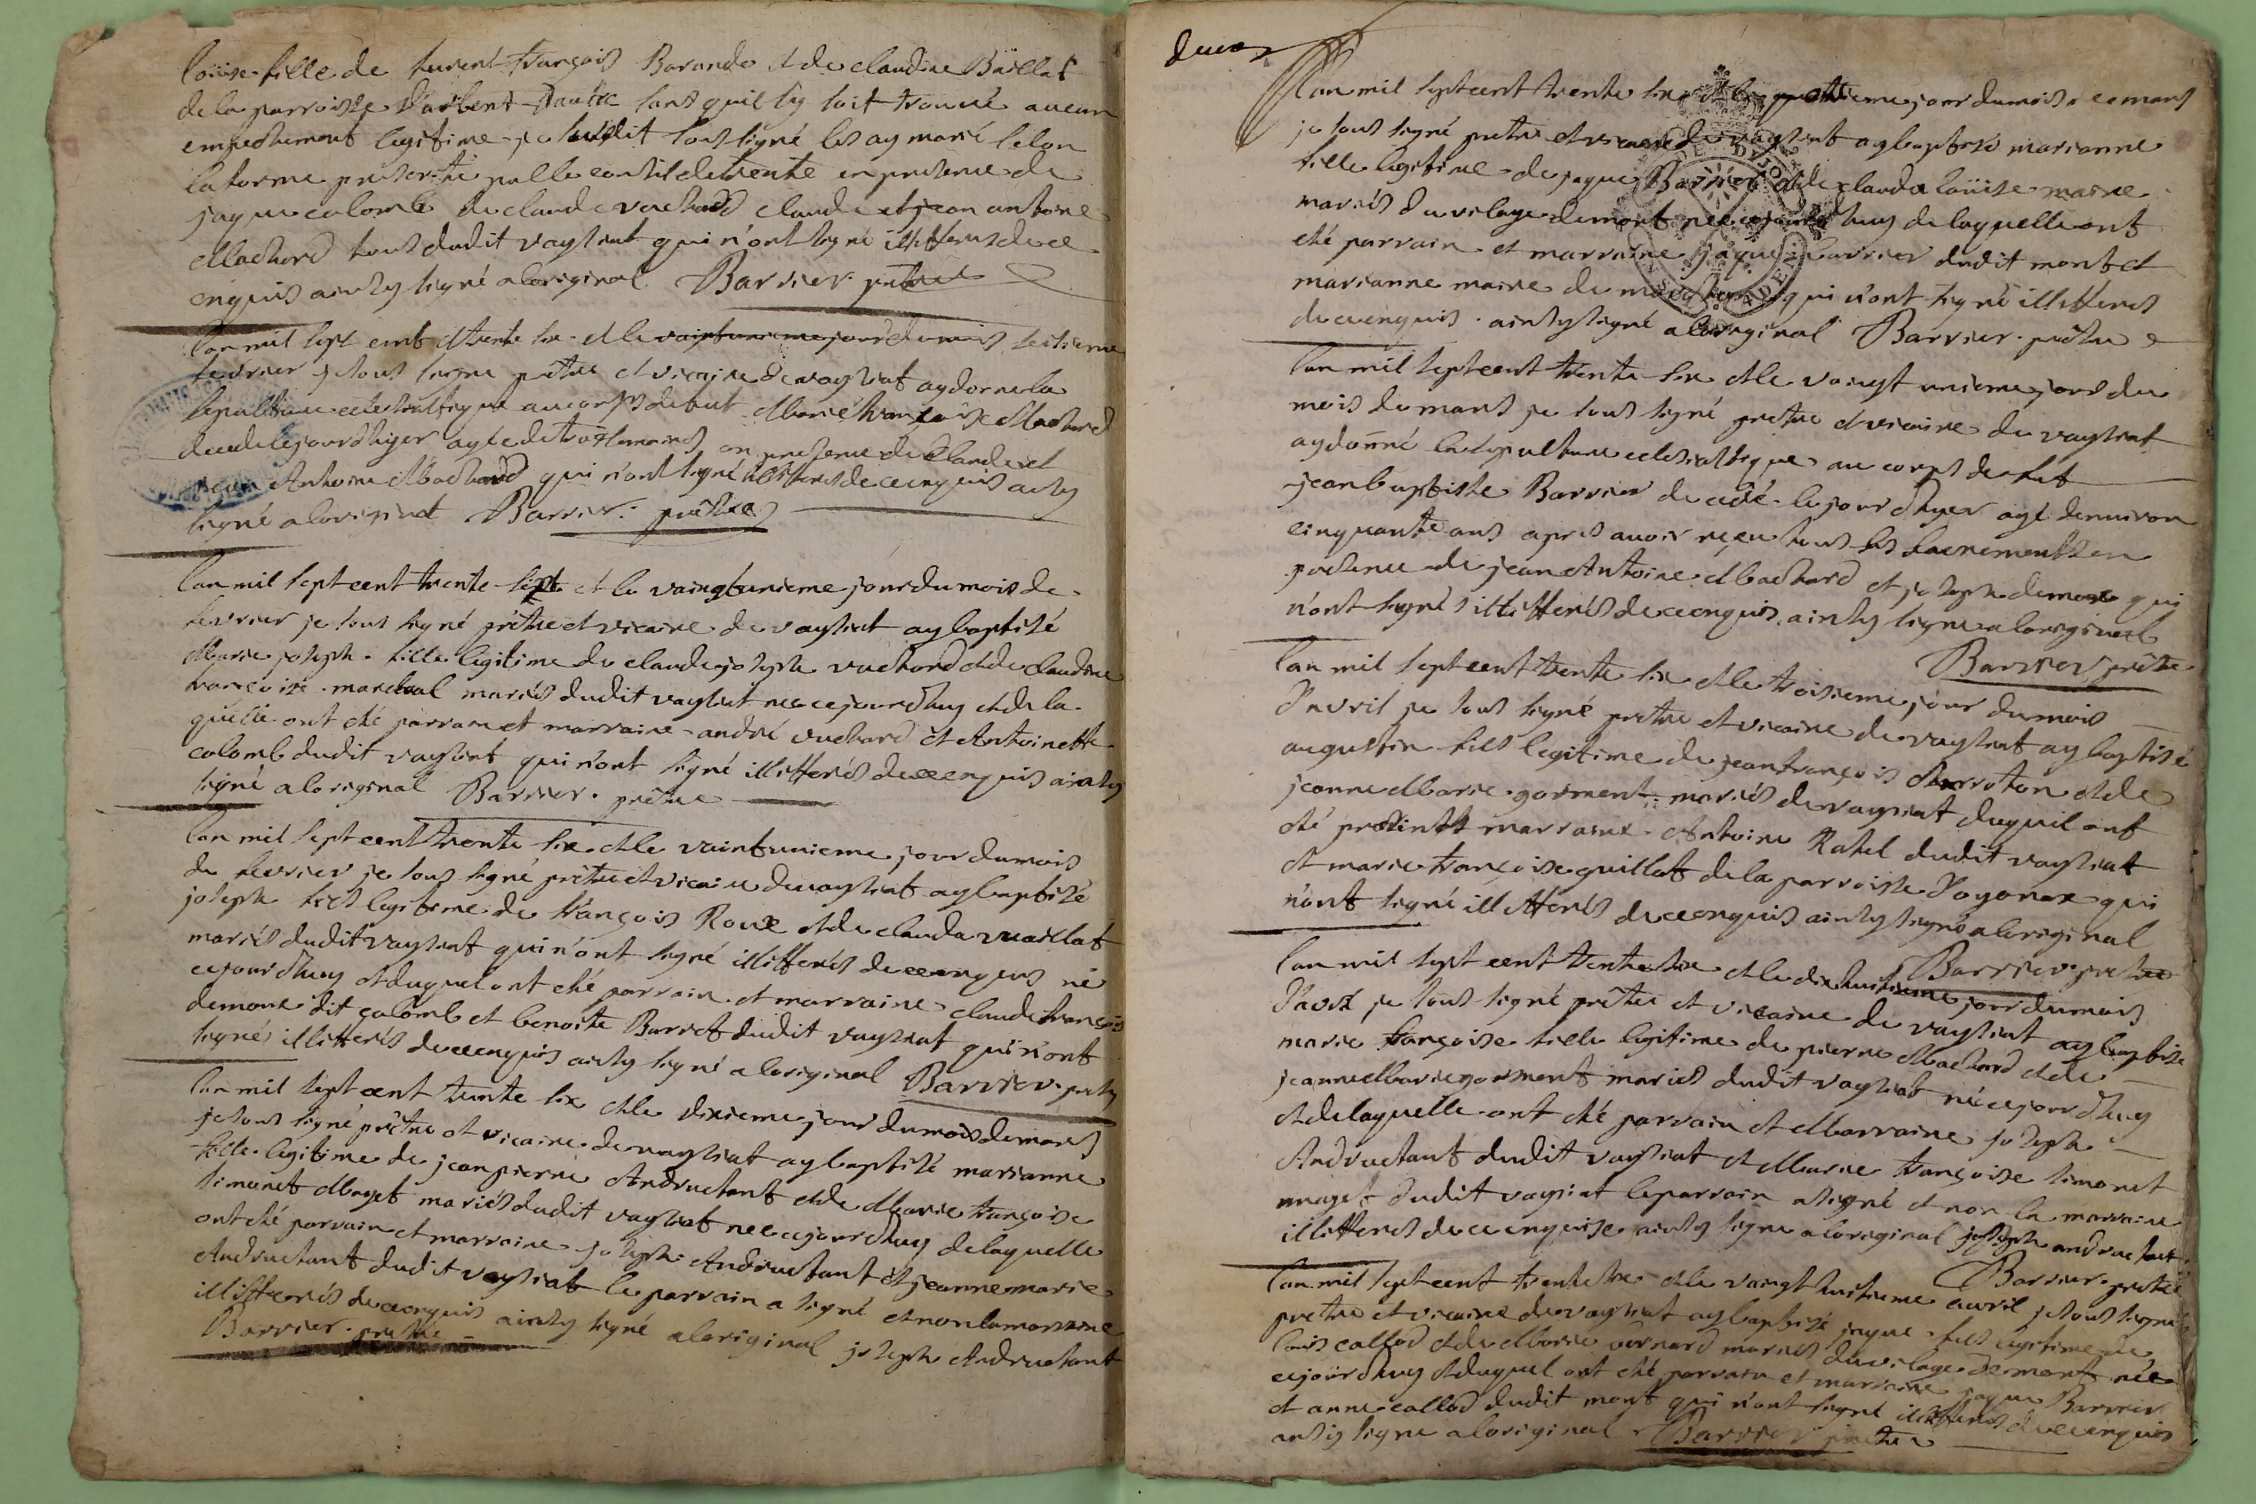 loüise fille de laurent françois Barande et de claudine Baillat
de la parroisse d'arbent d'autre sans quil sÿ soit trouvé aucun
empechement legitime je susdit sous signé les ay marié selon
la forme prescritte par le concil de trente en presence de
jaque colomb de claude vuchard claude et jean antoine
Machard tous dudit vaysiat qui n'ont signé illitterés de ce
enquis ainsy signé a loriginal Barrier prêtre
lan mil sept cent et trente six et le
fevrier je sous signé prêtre et vicaire de vaysiat ay donné la
sepulture eclesiastique au corps de fut Marie françoise Machard
decedé le jour d'hyer agée de trois semaines en presence de Claude et
jean Antoine Machard qui n'ont signé illitterés de ce enquis ainsy
signé a loriginal Barrier prêtre
lan mil sept cent trente six et le vaingtunieme jour du mois de
fevrier je sous signé prêtre et vicaire de vaysiat ay baptisé
Marie joseph fille legitime de claude joseph vuchard et de claudine
françoise marechal mariés dudit vaysiat nee ce jourd'huy et de la
quelle ont eté parrain et marraine andré vuchard et Antoinette
colomb dudit vaysiat qui n'ont signé illitterés de ce enquis ainsy
signé a loriginal Barrier prêtre
lan mil sept cent trente six et le vaintunieme jour du mois
de fevrier je sous signé prêtre et vicaire de vaysiat ay baptisé
joseph fils legitime de françois Roux et de clauda vuaillat
mariés dudit vaysiat qui n'ont signé illitterés de ce enquis né
ce jourd'huy et duquel ont eté parrain et marraine claude françois
demone dit colomb et benoite Burret dudit vaysiat qui n'ont
signé illitterés de ce enquis ainsy signé a loriginal Barrier prêtre
lan mil sept cent trente six et le dixieme jour du mois de mars
je sous signé prêtre et vicaire de vaysiat ay baptisé marianne
fille legitime de jean pierre Andructant et de Marie françoise
simonet Maget mariés dudit vaysiat nee ce jourd'huy de laquelle
ont eté parrain et marraine joseph Andructant et jeanne marie
Andructant dudit vaysiat le parrain a signé et non la marraine
illitterés de ce enquis ainsy signé a loriginal joseph Andructant
Barrier prêtre
deux
lan mil sept cent trente six et le jour du mois de mars
je sous signé prêtre et vicaire de vaysiat ay baptisé marianne
fille legitime de jaque Barrier et de clauda loüise maire
mariés du vilage de mont nee ce jourd'huy de laquelle ont
eté parrain et marraine jaque Barrier dudit mont et
marianne maire de qui n'ont signé illitterés
de ce enquis ainsy signé a loriginal Barrier prêtre
lan mil sept cent trente six et le vaingt unieme jour du
mois de mars je sous signé prêtre et vicaire de vaysiat
ay donné la sepulture eclesiastique au corps de fut
jean baptiste Barrier decedé le jour d'hyer agé denviron
cinquante ans apres avoir reçeu tous les sacrements en
presence de jean Antoine Machard et joseph demone qui
n'ont signés illitterés de ce enquis ainsy signe a loriginal
Barrier prêtre
lan mil sept cent trente six et le troisieme jour du mois
d'avril je sous signé prêtre et vicaire de vaysiat ay baptisé
augustin fils legitime de jean françois et de
jeanne Marie gorment mariés de vaysiat duquel ont
eté marraine Antoine Rahel dudit vaysiat
et marie françoise guillot de la parroisse d'oyonax qui
n'ont signé illitterés de ce enquis ainsy signé a loriginal
Barrier prêtre
lan mil sept cent trente six et le dix huitieme jour du mois
d'avril je sous signé prêtre et vicaire de vaysiat ay baptisé
marie françoise fille legitime de pierre Machard et de
jeanne Marie gorment mariés dudit vaysiat née ce jourd'huy
et de laquelle ont eté parrain et Marraine joseph
Andructant dudit vaysiat et Marie françoise simonet
maget dudit vaysiat le parrain a signé et non la marraine
illitterés de ce enquise ainsy signe a loriginal joseph andructant
Barrier prêtre
lan mil sept cent trente six et le vaingt huitieme avril je sous signé
prêtre et vicaire de vaysiat ay baptisé jaque fils legitime de
loüis callod et de Marie mariés du vilage de mont née
ce jourd'huy et duquel ont eté parrain et marraine jaque Barrier
et anne callod dudit mont qui n'ont signé illitterés de ce enquis
ainsy signe a loriginal Barrier prêtre